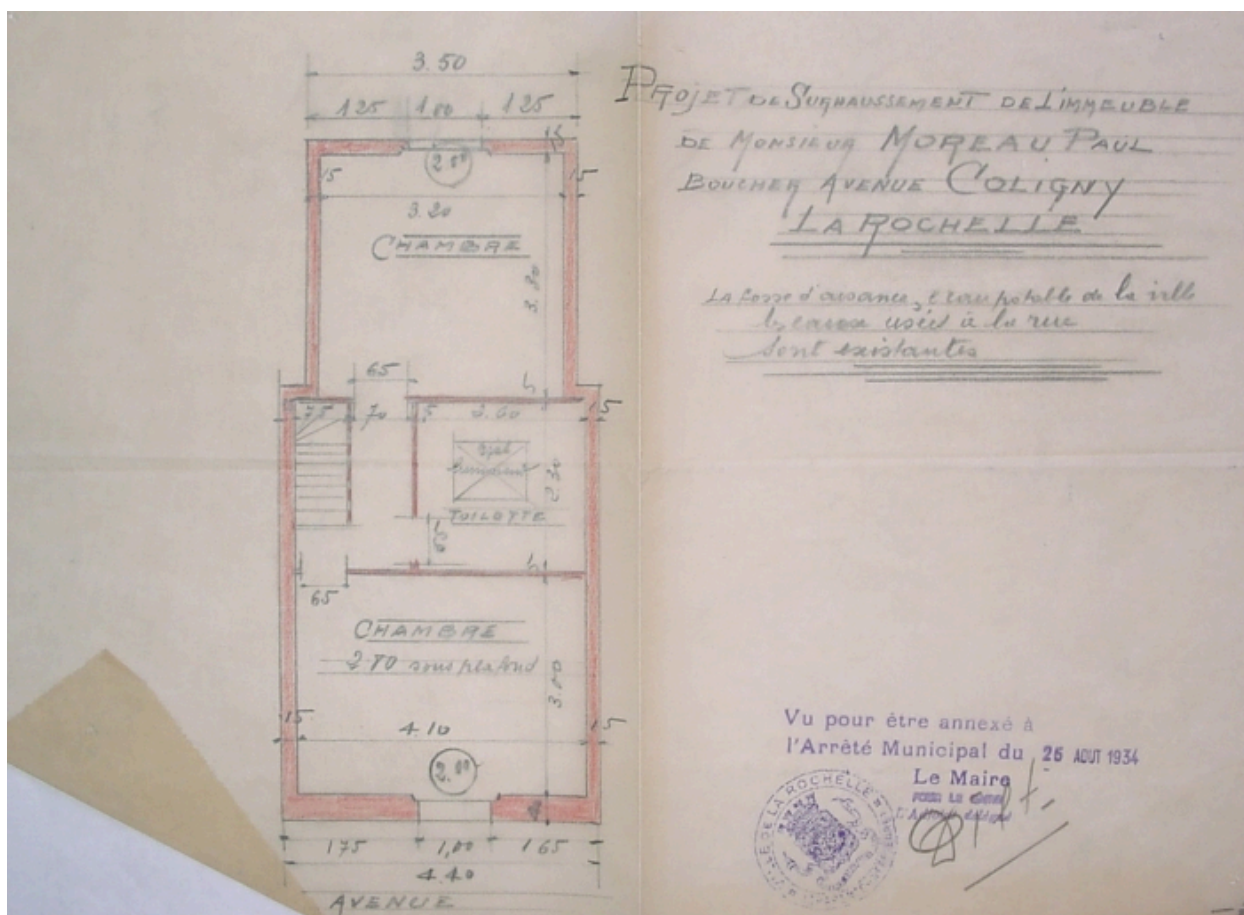 3.50
125 1.00 125
15
2.00
15 15
3.20
CHAMBRE
3.80
65
5
75 70 5 2.60 15
2.30
TOILETTE
65
5
65
CHAMBRE
2 80 sous plafond
3.00
15 15
4.10
2.00
175 1,00 165
4.40
AVENUE
PROJET DE SURHAUSSEMENT DE L'IMMEUBLE
DE MONSIEUR MOREAU PAUL
BOUCHER AVENUE COLIGNY
LA ROCHELLE
La fosse d'aisance, l'eau potable de la ville
les eaux usées à la rue
sont existantes
Vu pour être annexé à
l'Arrêté Municipal du 26 AOUT 1934
Le Maire
POUR LE MAIRE
L'Adjoint délégué
VILLE DE LA ROCHELLE